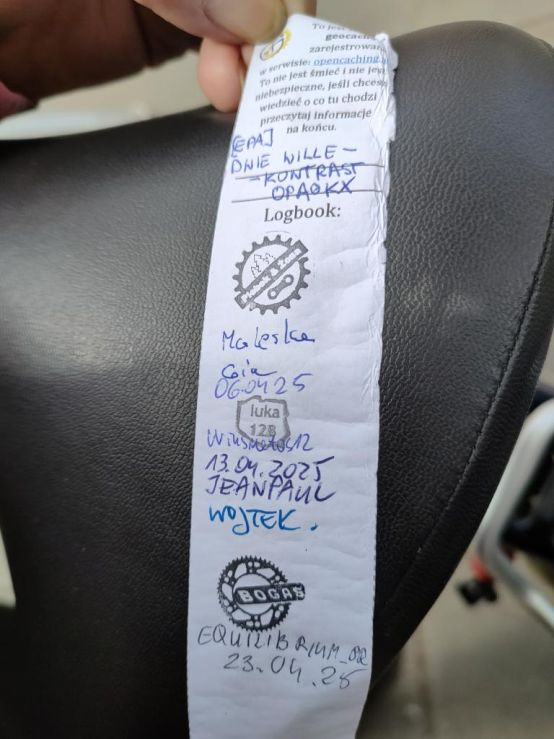 To
geocach
zarejestrowan
w serwisie: opencaching.
To nie jest śmieć i nie jes
niebezpieczne, jeśli chcesz
wiedzieć o co tu chodzi
przeczytaj informacje
na końcu.
[EPA]
DNIE WILLE-
-KONTRAST
OPA0KX
Logbook:
Maleska
Gia
06.04.25
luka
128
13.04.2025
JEANPAUL
WOJTEK.
BOGAS
EQUILIBRIUM_
23.04.25